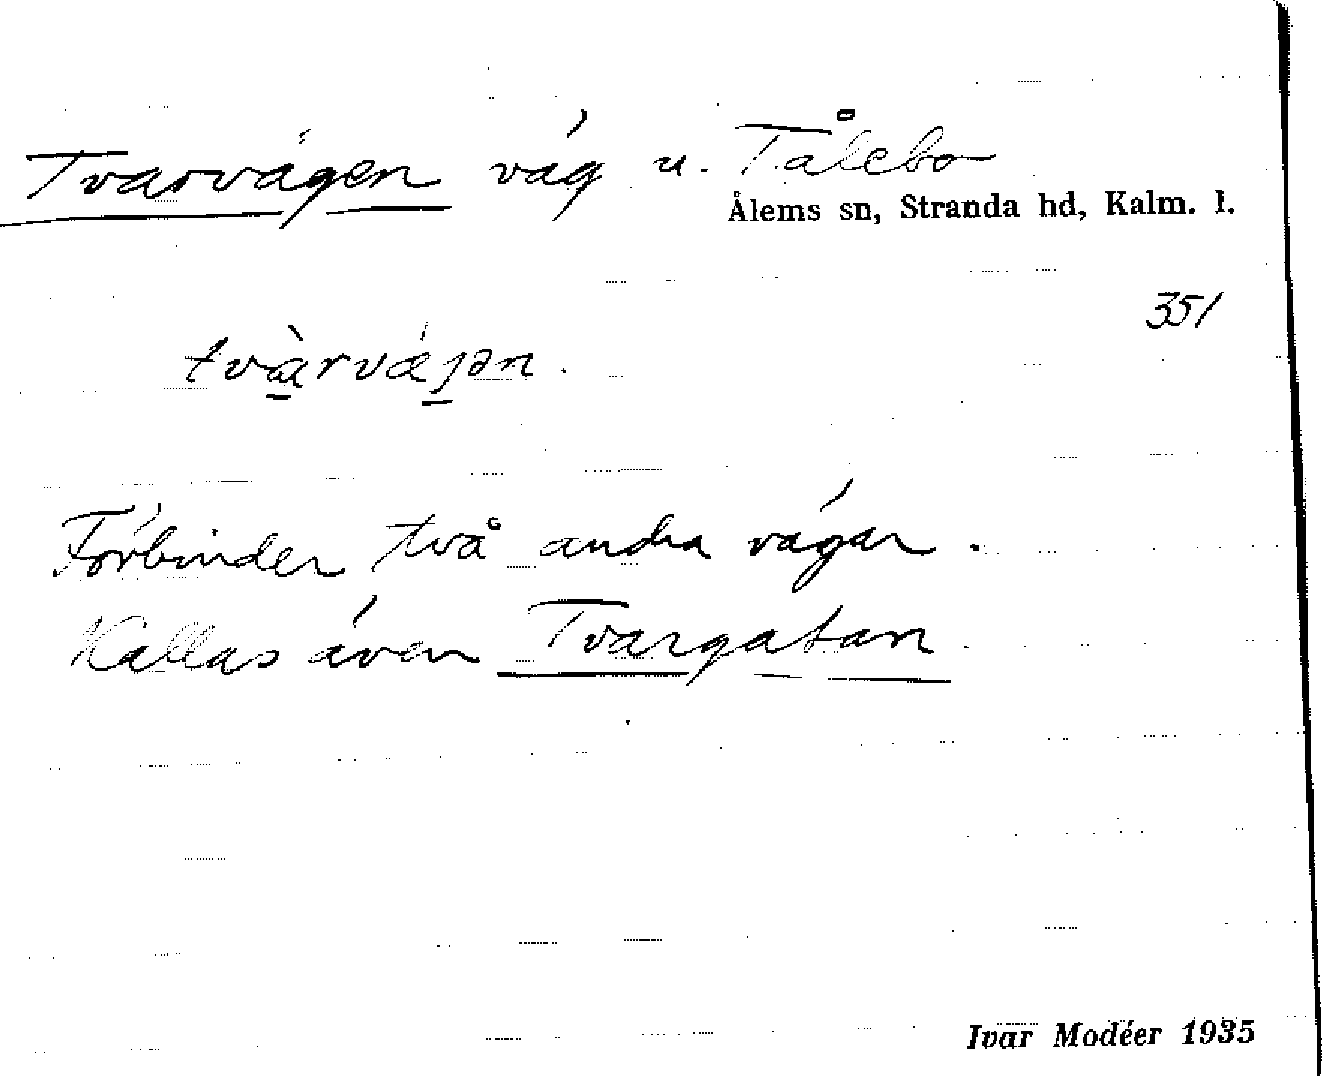 Tvarvägen väg u. Tålebo
Ålems sn, Stranda hd, Kalm. l.
351
tvàrvǽjən.
Förbinder två andra vägar.
Kallas även Tvargatan
Ivar Modéer 1935